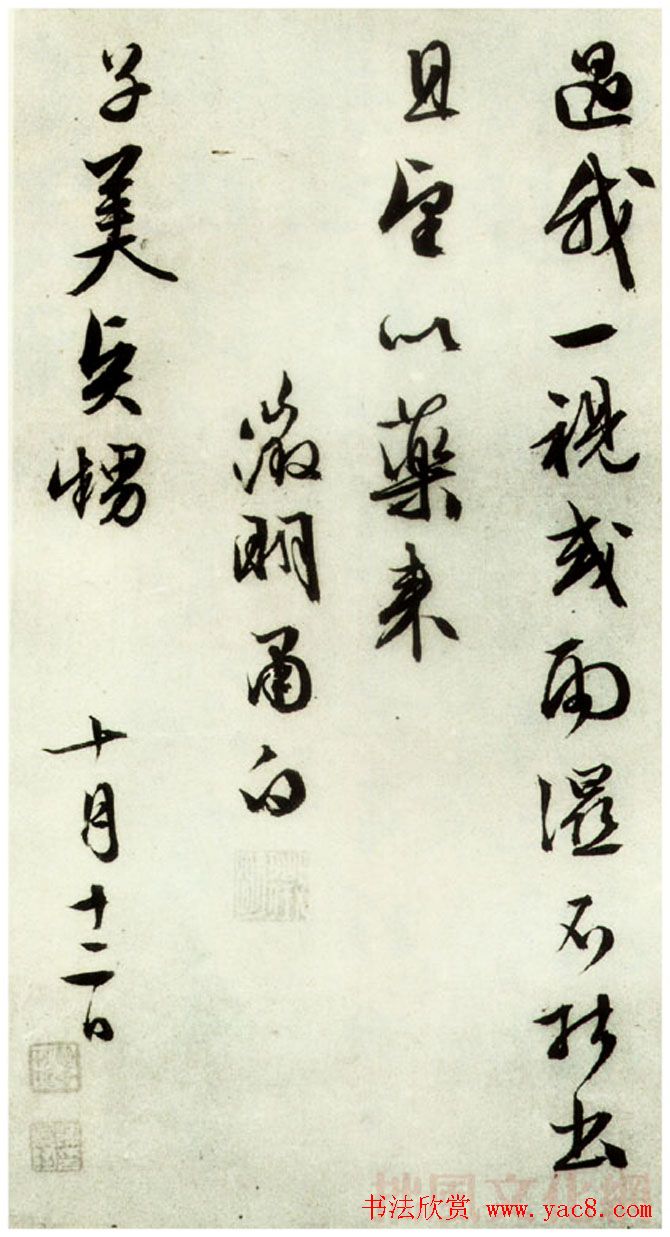 過我一視或雨濕不能出
且望以藥來
徵明白
子美賢甥
十月十二日
书法欣赏 www.yac8.com